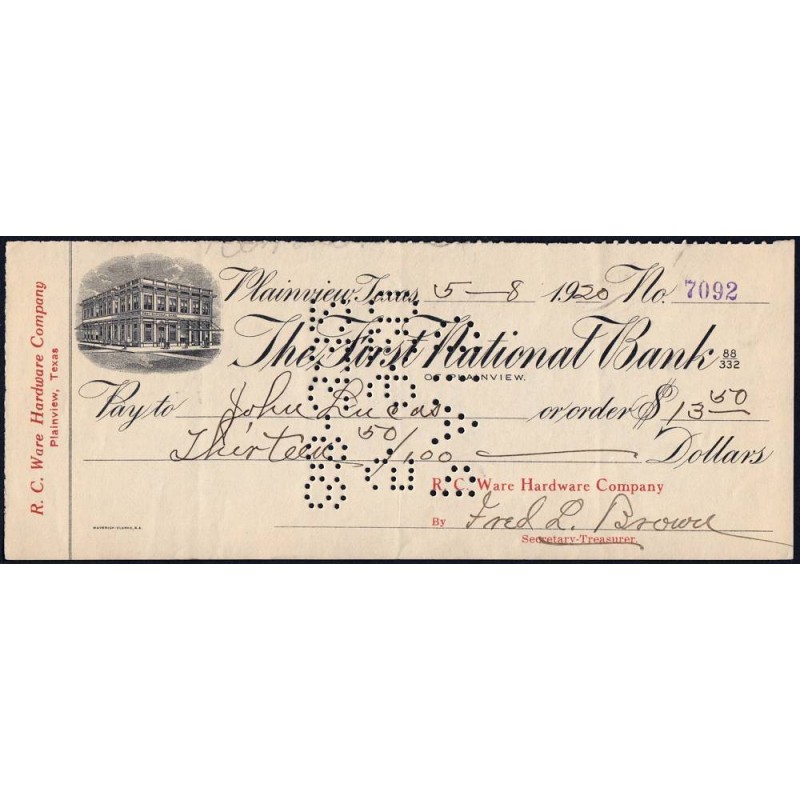 R. C. Ware Hardware Company
Plainview, Texas
Plainview, Texas, 5-8 1920 No. 7092
The First National Bank 88/332
OF PLAINVIEW.
Pay to John Lucas or order $ 13 50
Thirteen 50/100 Dollars
R. C. Ware Hardware Company
By Fred L. Brown
Secretary-Treasurer.
MAVERICK-CLARKE, S.A.